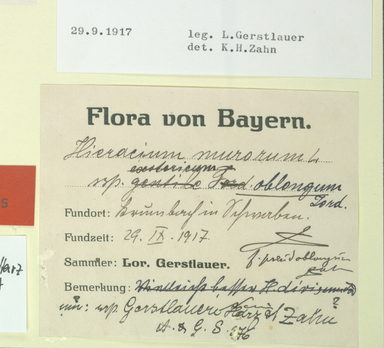 29.9.1917 leg. L.Gerstlauer
det. K.H.Zahn
Flora von Bayern.
Hieracium murorum L
ssp. gentile oblongum
Jord.
Fundort: in Schwaben.
Fundzeit: 29. IX. 1917.
Sammler: Lor. Gerstlauer.
f. pseudoblongum
Zahn
Bemerkung: Vielleicht besser H. divisum ?
ssp Gerstlaueri Harz et Zahn
A. & G. S. 276